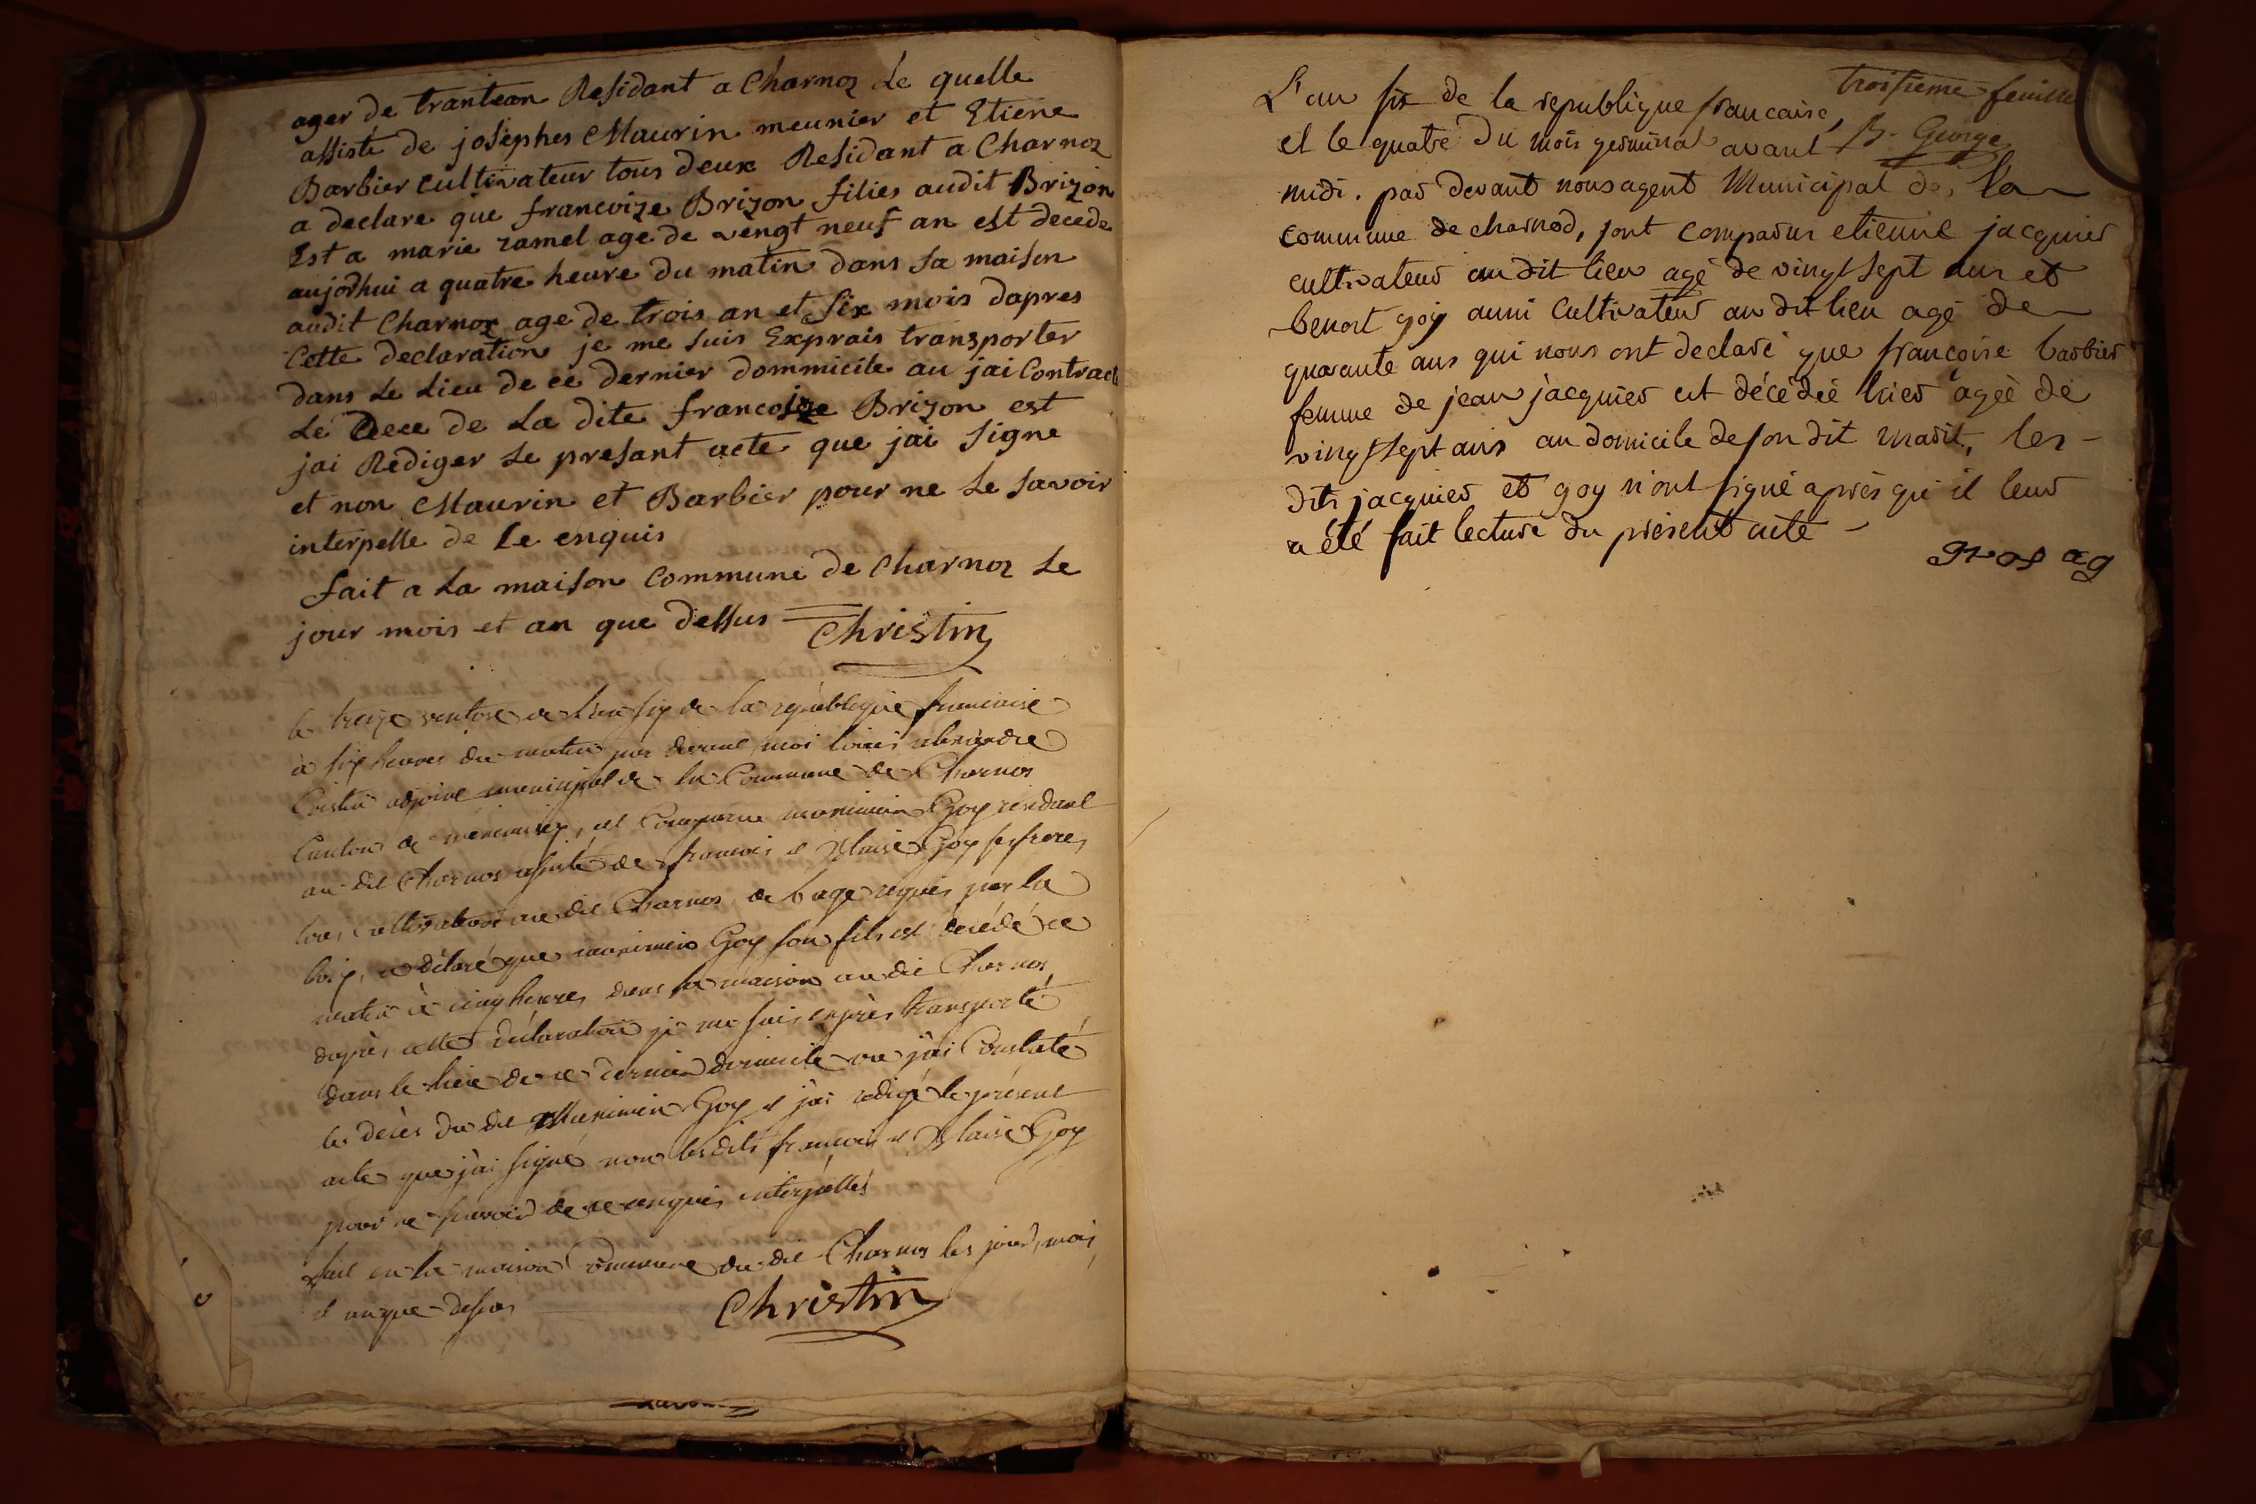 ager de trantean Residant a Charnoz Le quelle
assisté de josephes Maurin meunier et Etiene
Barbier cultivateur tous deux Residant a Charnoz
a declare que francoize Brizon filies audit Brizon
Est a marie ramel age de vengt neuf an est decede
aujordhui a quatre heure du matin dans sa maison
audit Charnoz age de trois an et six mois dapres
Cette declaration je me suis Exprais transporter
dans Le Lieu de ce dernier dommicile au jai Contracte
Le Dece de La dite francoize Brizon est
jai Rediger Le presant acte que jai signe
et non Maurin et Barbier pour ne Le savoir
interpelle de Le enquis
fait a La maison Commune de Charnoz Le
jour mois et an que dessus Christin
le treize ventose de l'an six de la république francaise
à six heures du matin par devant moi Louis alexandre
Cristin adjoint municipal de la Commune de Charnos
Canton de meximieux, est Comparu maximin Goy résidant
au dit Charnos assisté de francois et Blaise Goy ses freres
tous cultivateurs au dit Charnos de l'age requis par la
loix, a déclaré que maximin Goy son fils est décédé ce
matin à cinq heures dans sa maison au dit Charnos
d'après cette déclaration je me suis exprès transporté
dans le lieu de ce dernier domicile ou j'ai Constaté
le décès du dit Maximin Goy et j'ai rédigé le présent
acte que j'ai signé non les dits francois et Blaise Goy
pour ne savoir de ce enquis interpellés
fait en la maison Commune du dit Charnos les jour, mois
et an que dessus Christin
troisieme feuille
B. George
L'an six de la republique francaise,
et le quatre du mois germinal avant
midi. par devant nous agent Municipal de la
commune de charnod, sont comparus etienne jacquier
cultivateur au dit lieu agé de vingt sept ans et
benoit goy aussi Cultivateur au dit lieu agé de
quarante ans qui nous ont declaré que francoise barbier
femme de jean jacquier est décédée hier agée de
vingt sept ans au domicile de son dit marit, les
dits jacquier et goy n'ont signé après qu'il leur
a été fait lecture du présent acte
gros ag